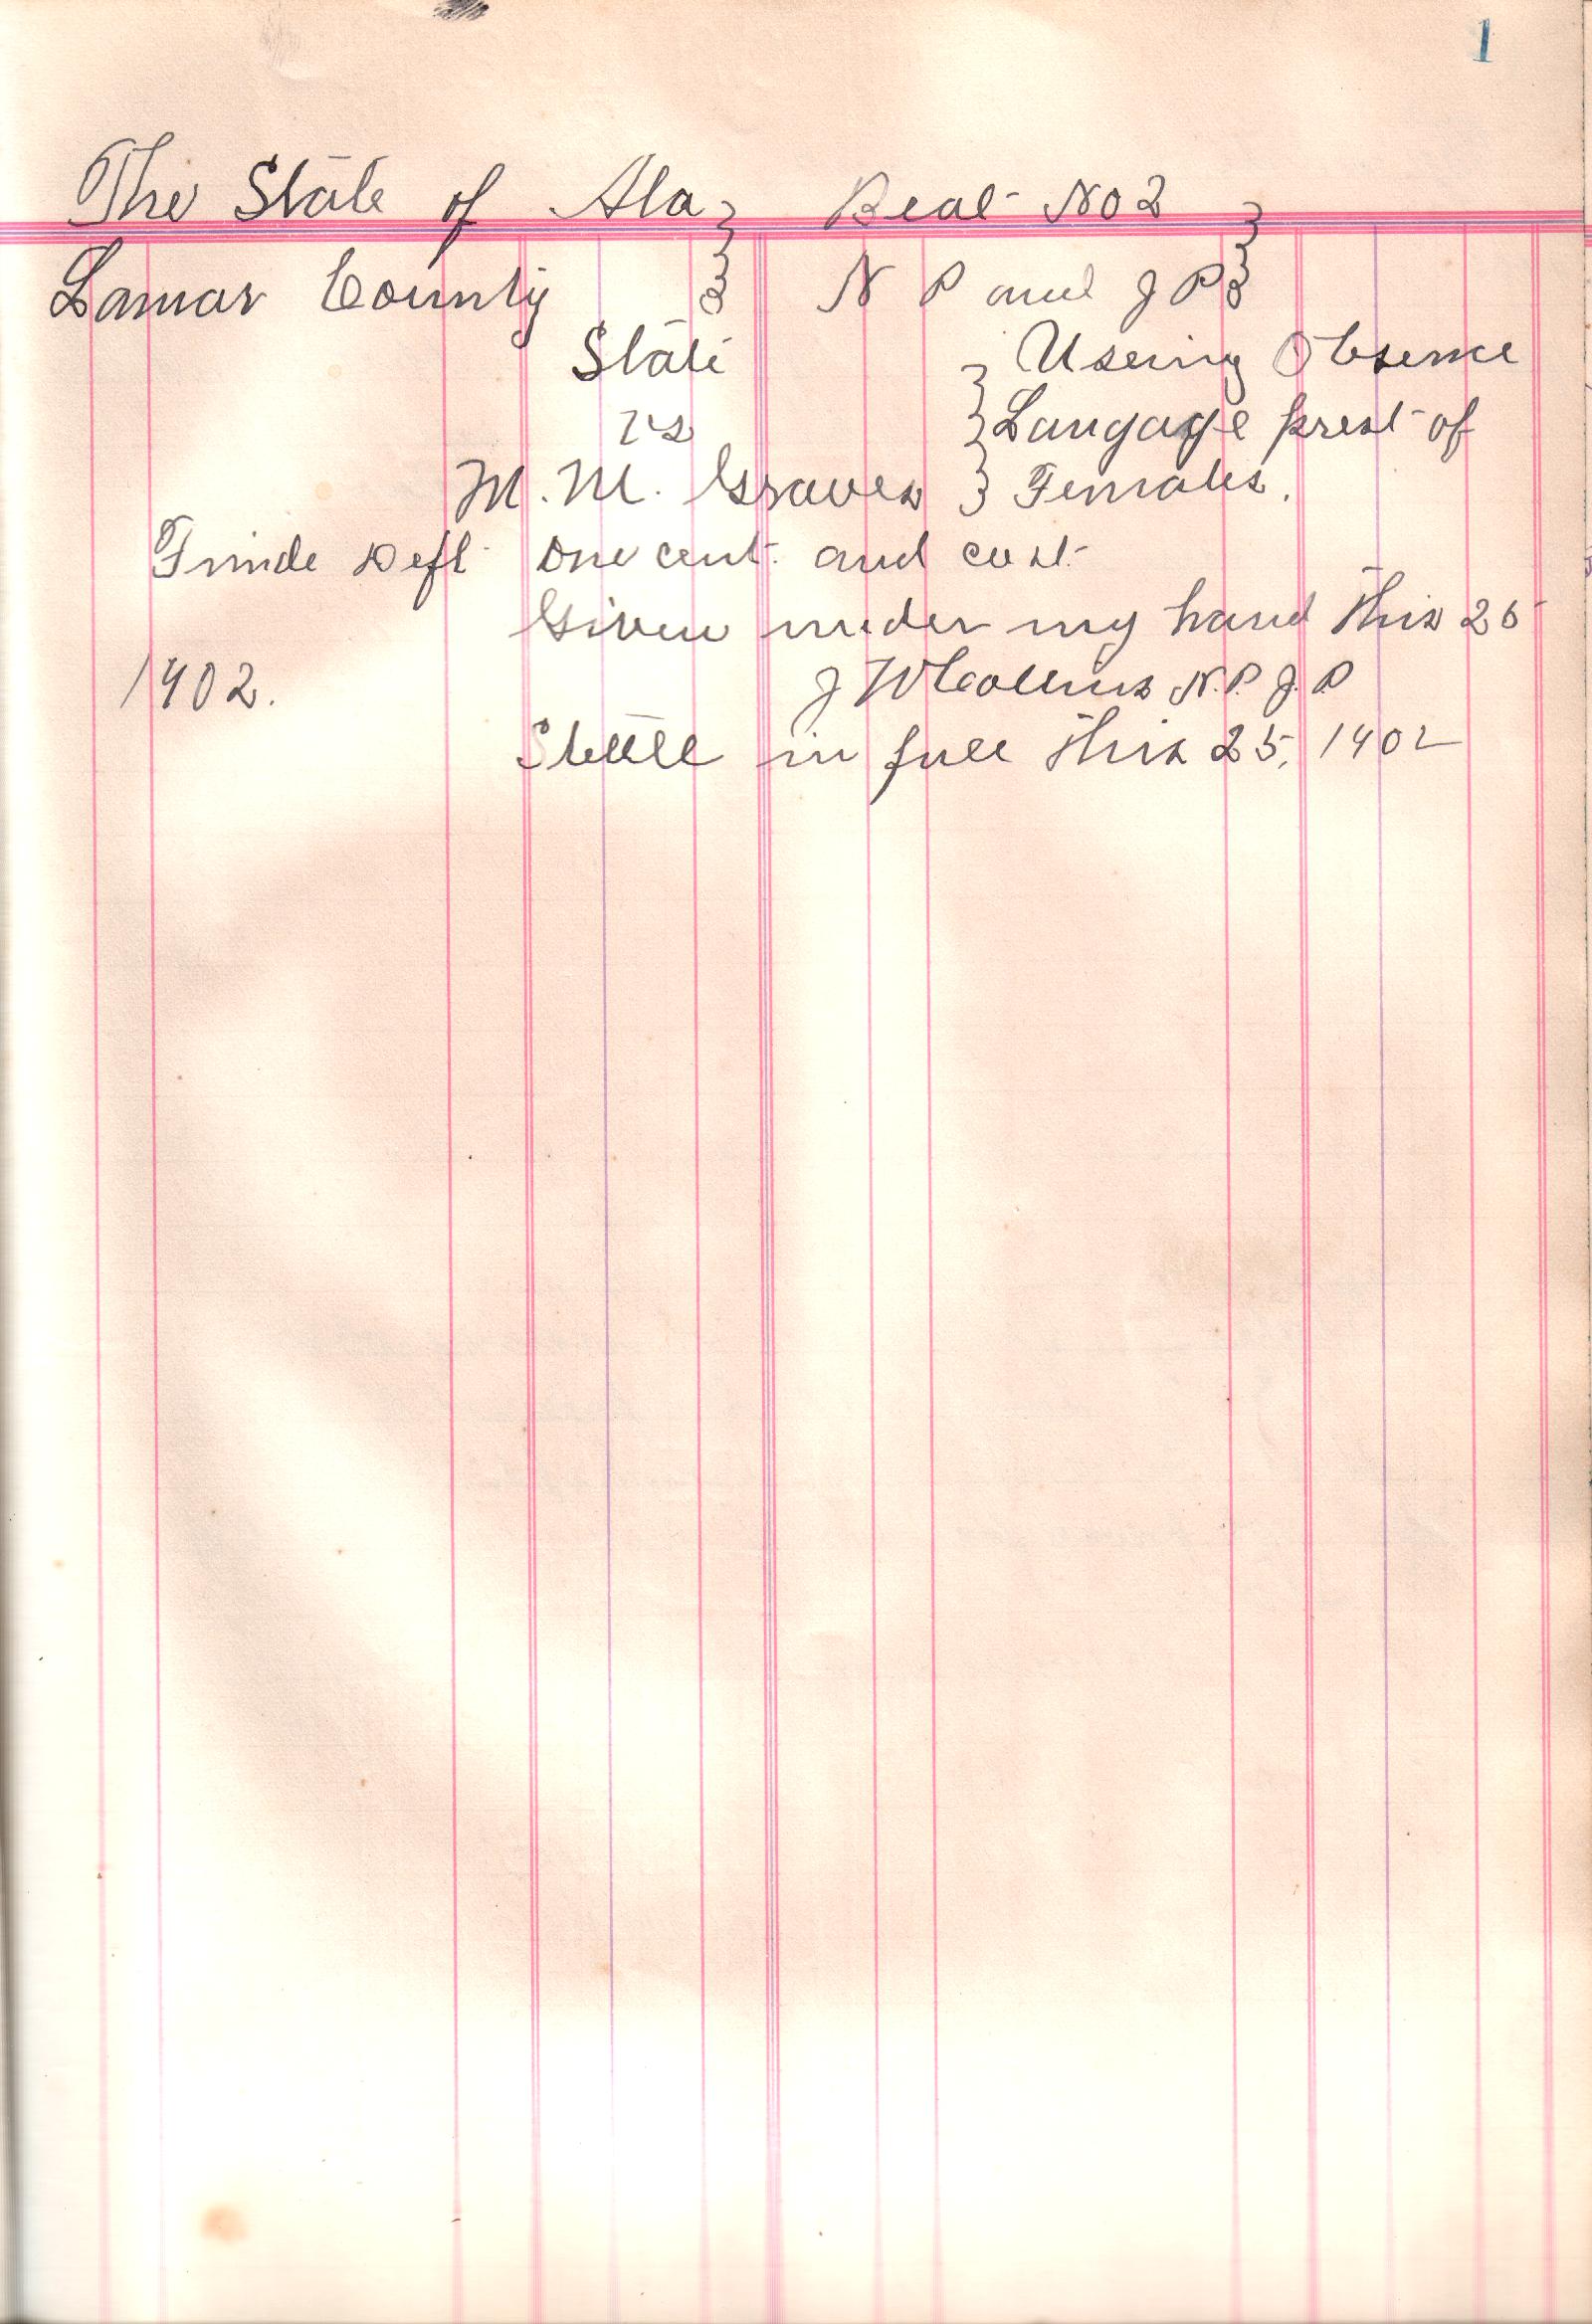 1
The State of Ala } Beat No 2 }
Lamar County } N P and J P }
State } Useing Obsence
vs } Langage prest of
M. M. Graves } Females.
Finde Deft one cent and cost
Given under my hand this 25
1902. J W Collins N.P. J.P
Settle in full this 25, 1902